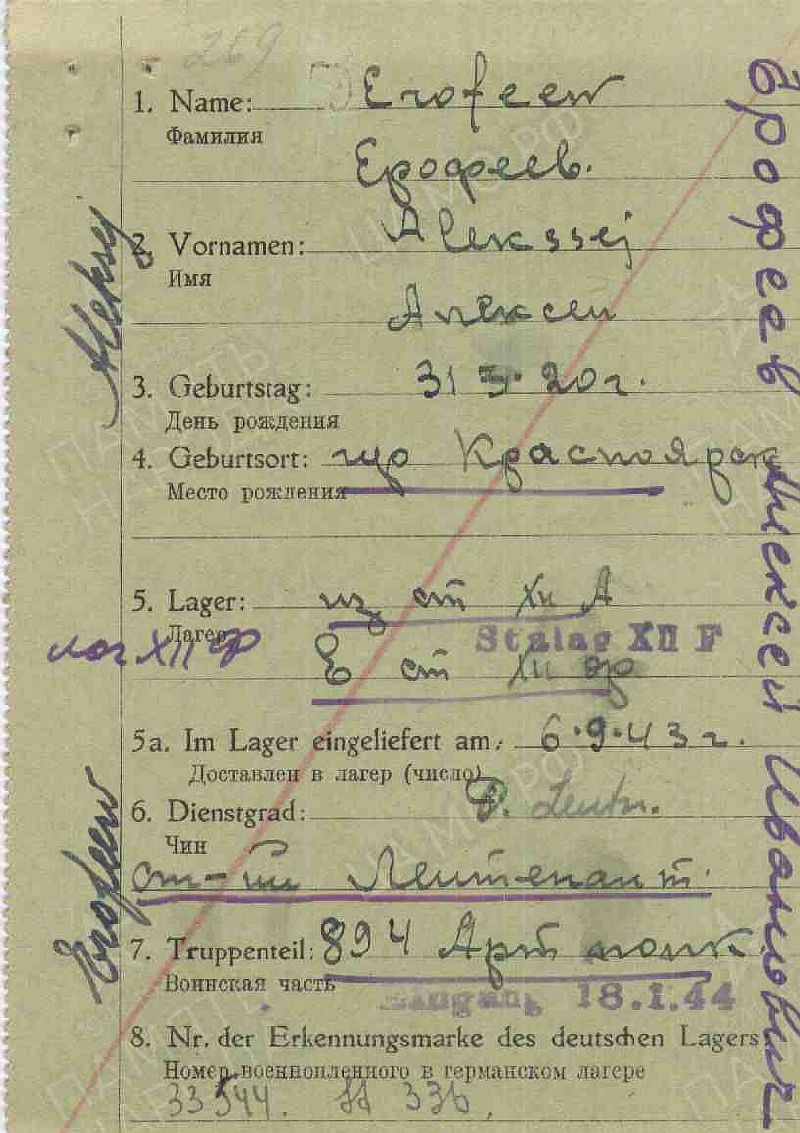 269
1. Name: Erofeew
Фамилия
Ерофеев.
2. Vornamen: Alekssej
Имя
Алексеи
3. Geburtstag: 31 3. 20 г.
День рождения
4. Geburtsort: гор Красноярск
Место рождения
5. Lager: из ст XII А
Лагер
Stalag XII F
лаг XII Ф
В ст XII Ф
5a. Im Lager eingeliefert am: 6.9.43 г.
Доставлен в лагер (число)
6. Dienstgrad: O. Leutn.
Чин
ст-ий Лейтенант.
7. Truppenteil: 894 Арт полк
Воинская часть
Eingang 18.1.44
8. Nr. der Erkennungsmarke des deutschen Lagers
Номер военнопленного в германском лагере
33544. 336
Alekssej
Erofeew
Ерофеев Алексей Иванович